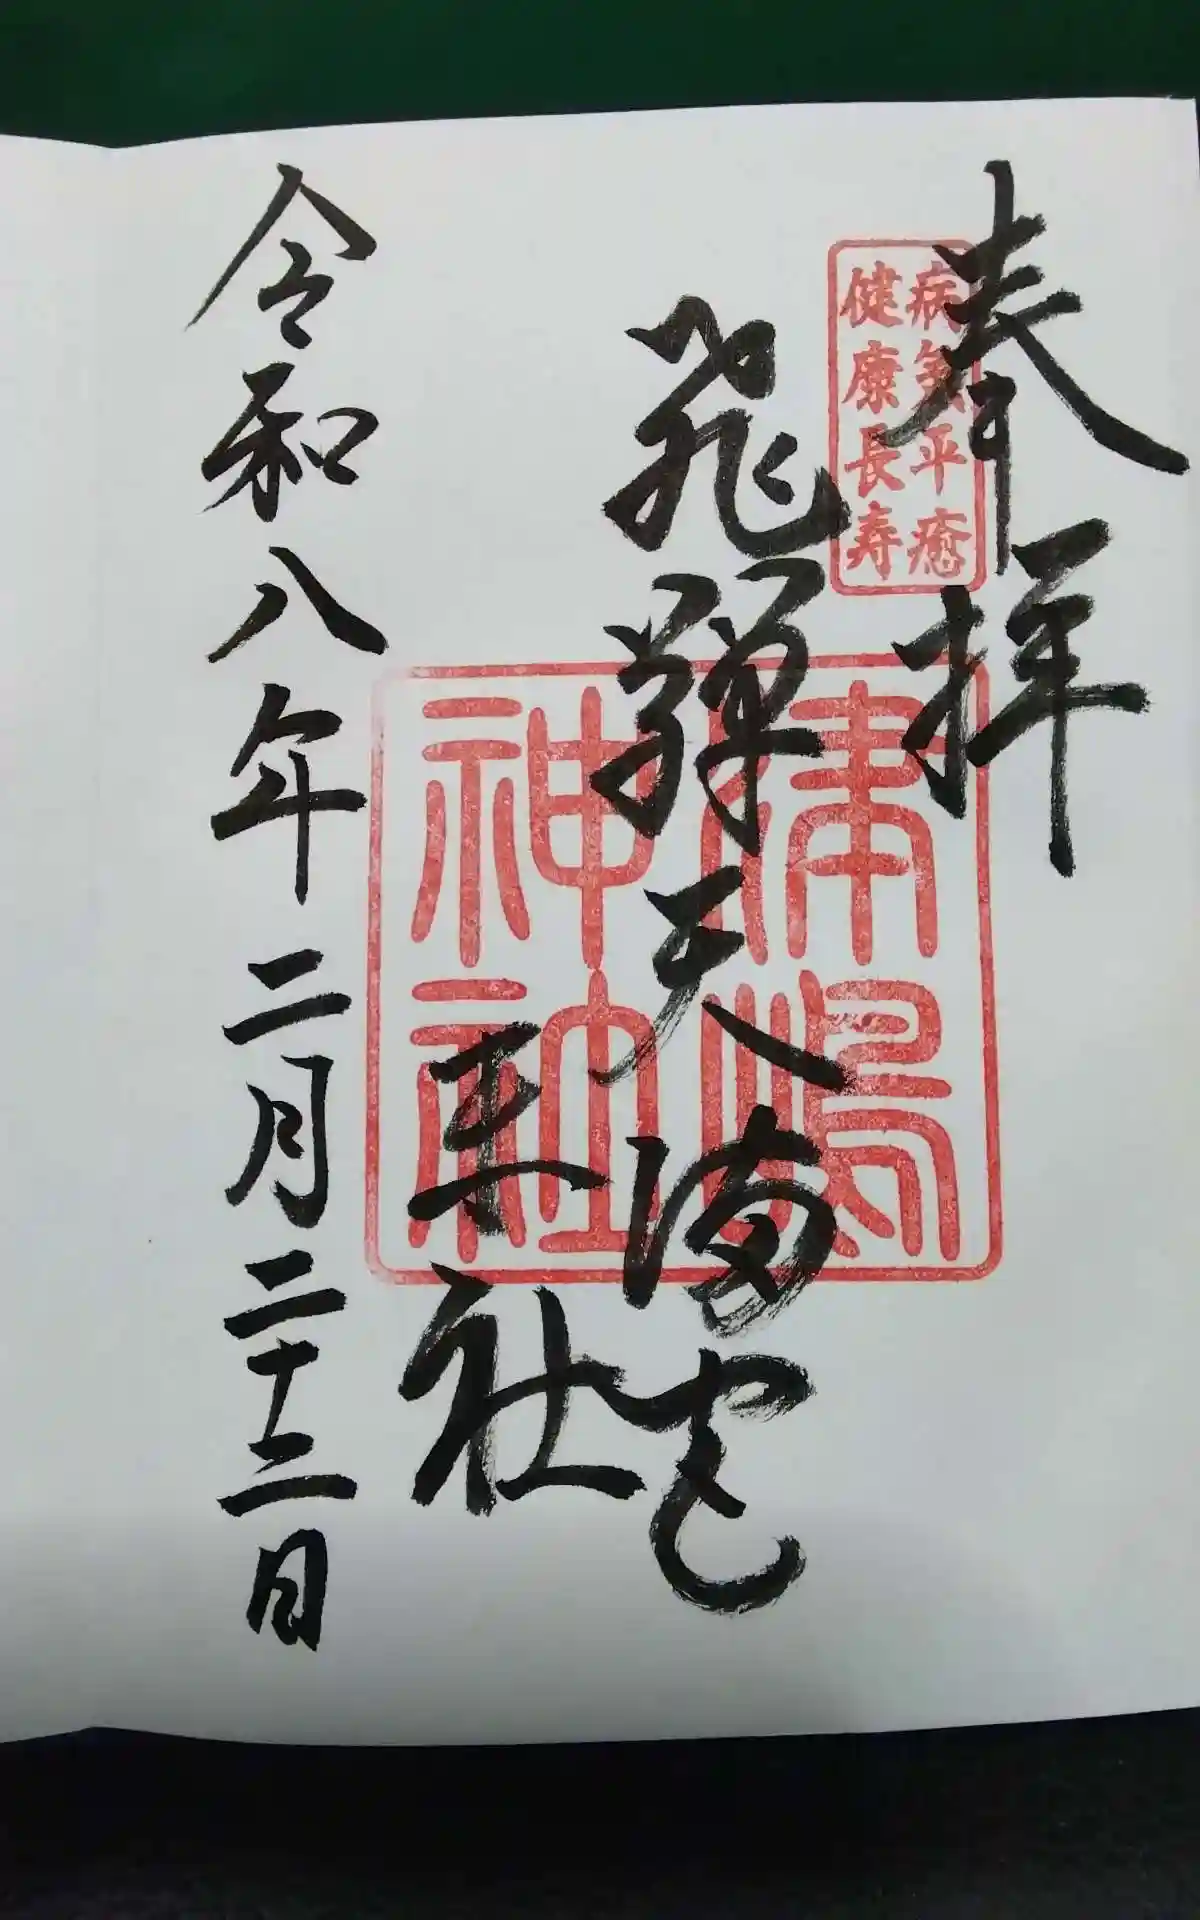 奉拝
病気平癒
健康長寿
飛騨天満宮
末社
津嶋
神社
令和八年二月二十二日